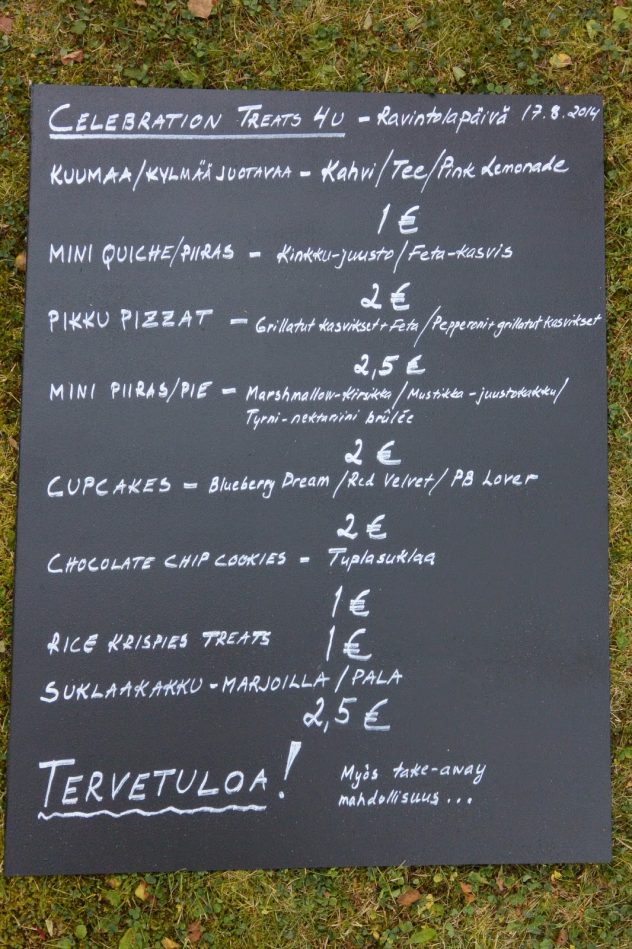 CELEBRATION TREATS 4U - Ravintolapäivä 17.8.2014
KUUMAA/KYLMÄÄ JUOTAVAA - Kahvi/Tee/Pink Lemonade
1 €
MINI QUICHE/PIIRAS - Kinkku-juusto/Feta-kasvis
2 €
PIKKU PIZZAT - Grillatut kasvikset + Feta/Pepperoni + grillatut kasvikset
2,5 €
MINI PIIRAS/PIE - Marshmallow-Kirsikka/Mustikka-juustokakku/
Tyrni-nektariini brûlée
2 €
CUPCAKES - Blueberry Dream/Red Velvet/PB Lover
2 €
CHOCOLATE CHIP COOKIES - Tuplasuklaa
1 €
RICE KRISPIES TREATS 1 €
SUKLAAKAKKU - MARJOILLA/PALA
2,5 €
TERVETULOA! Myös take-away
mahdollisuus...